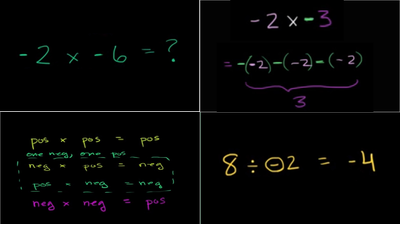 -2 x -6 = ?
-2 x -3
= -(-2)-(-2)-(-2)
3
pos x pos = pos
one neg, one pos
neg x pos = neg
pos - neg = neg
neg x neg = pos
8 ÷ -2 = -4